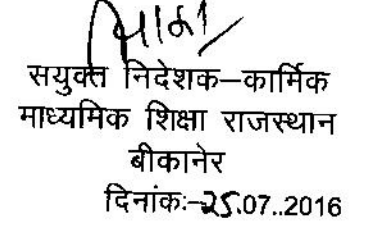 सयुक्त निदेशक–कार्मिक
माध्यमिक शिक्षा राजस्थान
बीकानेर
दिनांकः–25.07..2016